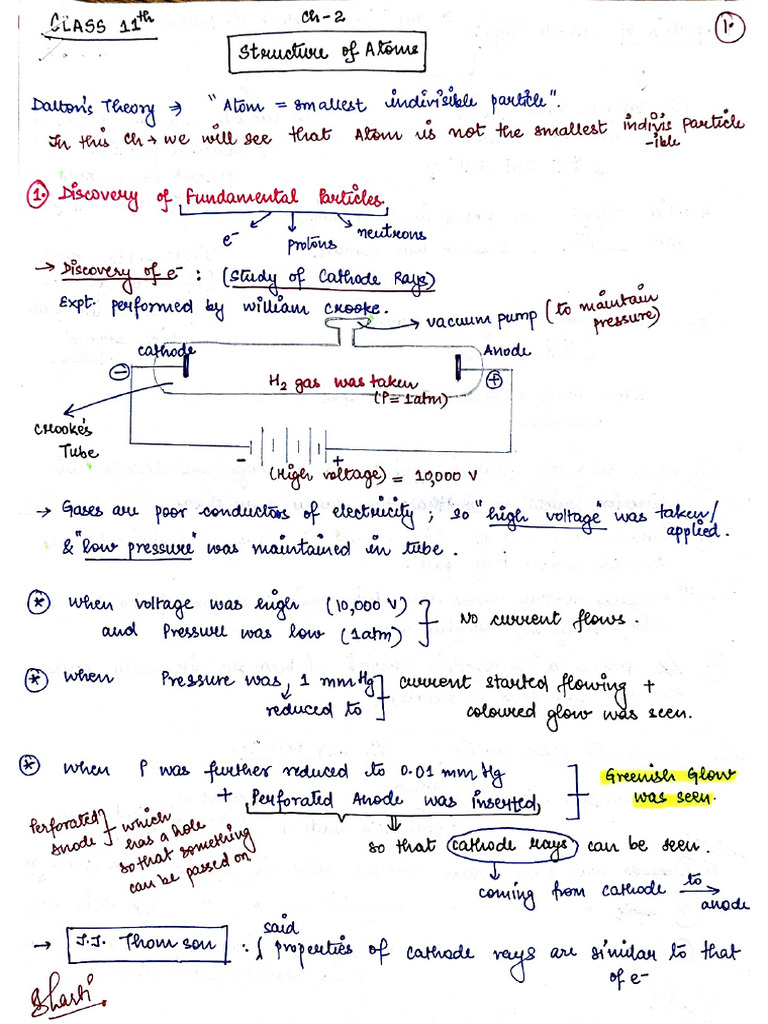 CLASS 11th
Ch-2
1.
Structure of Atoms
Dalton's Theory → "Atom = smallest indivisible particle".
In this Ch → we will see that Atom is not the smallest indivis particle
-ible
1. Discovery of Fundamental Particles.
e⁻ protons neutrons
→ Discovery of e⁻ : (Study of Cathode Rays)
Expt. performed by William CROOKE.
→ vacuum pump (to maintain
pressure)
cathode
Anode
−
+
H₂ gas was taken
(P = 1atm)
CROOKE's
Tube
- +
(High voltage) = 10,000 V
→ Gases are poor conductors of electricity ; so "high voltage" was taken/
applied.
& "low pressure" was maintained in tube.
* When voltage was high (10,000 V)
and Pressure was low (1atm)
No current flows.
* When Pressure was, 1 mm Hg
reduced to
current started flowing +
coloured glow was seen.
* When P was further reduced to 0.01 mm Hg
+ Perforated Anode was inserted
Greenish Glow
was seen.
Perforated
Anode
which
has a hole
so that something
can be passed on
so that cathode rays can be seen.
coming from cathode to →
anode
→ J.J. Thomson : said
{ properties of cathode rays are similar to that
of e⁻
Bharti.